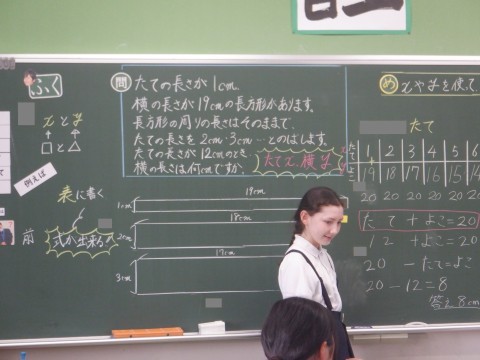 ふく
xとy
□と△
例えば
表に書く
式が出来る
前
問
たての長さが1cm、
横の長さが19cmの長方形があります。
長方形の周りの長さはそのままで、
たての長さを2cm・3cm…とのばします。
たての長さが12cmのとき
横の長さは何cmですか。
たてx、横y
19cm
1cm
18cm
2cm
17cm
3cm
め xやyを使って
たて
1 2 3 4 5 6
19 18 17 16 15 14
20 20 20 20 20 20
たて+よこ=20
12 +よこ=20
20 -たて=よこ
20 -12=8
答え8cm